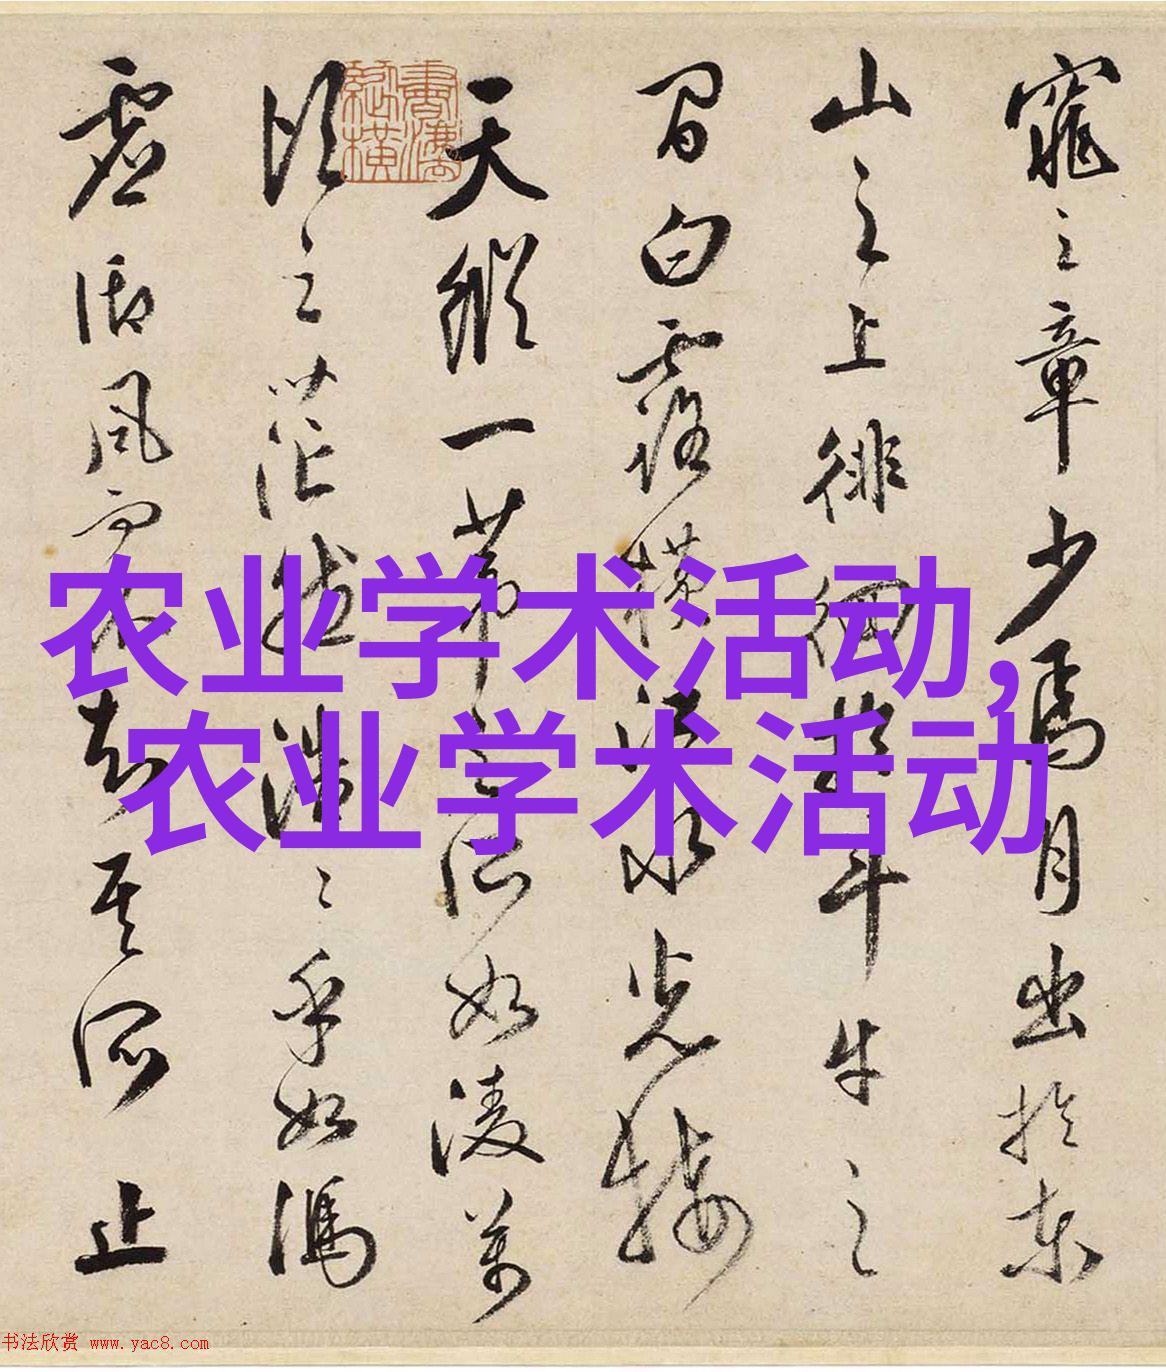 窕之章少焉月出於東
山之上徘徊於斗牛之
間白露橫江水光接
天縱一葦之所如凌萬
頃之茫然浩〻乎如馮
虛御風而不知其所止
农业学术活动,
农业学术活动
书法欣赏 www.yac8.com